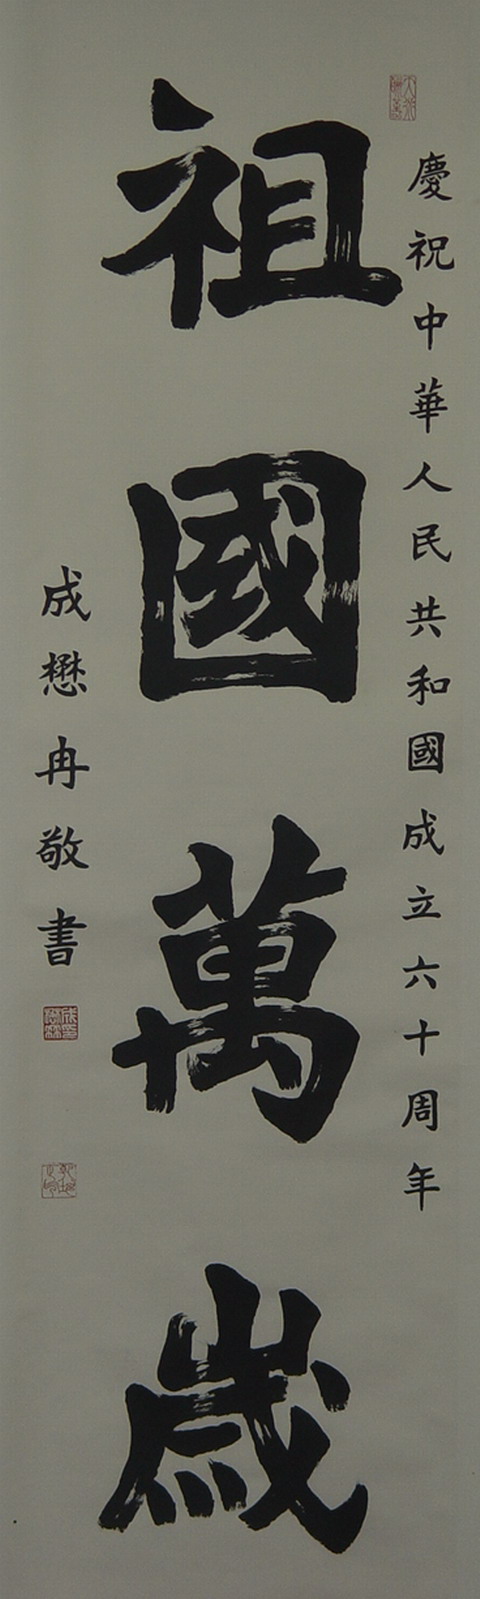 慶祝中華人民共和國成立六十周年
祖國萬歲
成懋冉敬書